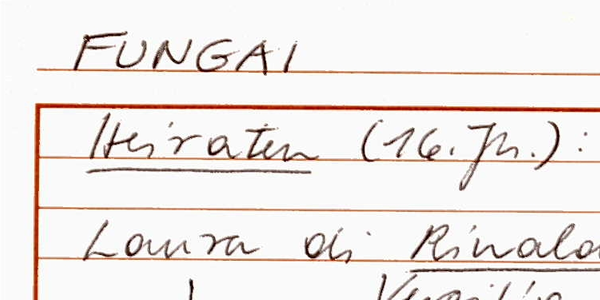 FUNGAI
Heiraten (16. Jh.):
Laura di Rinaldo